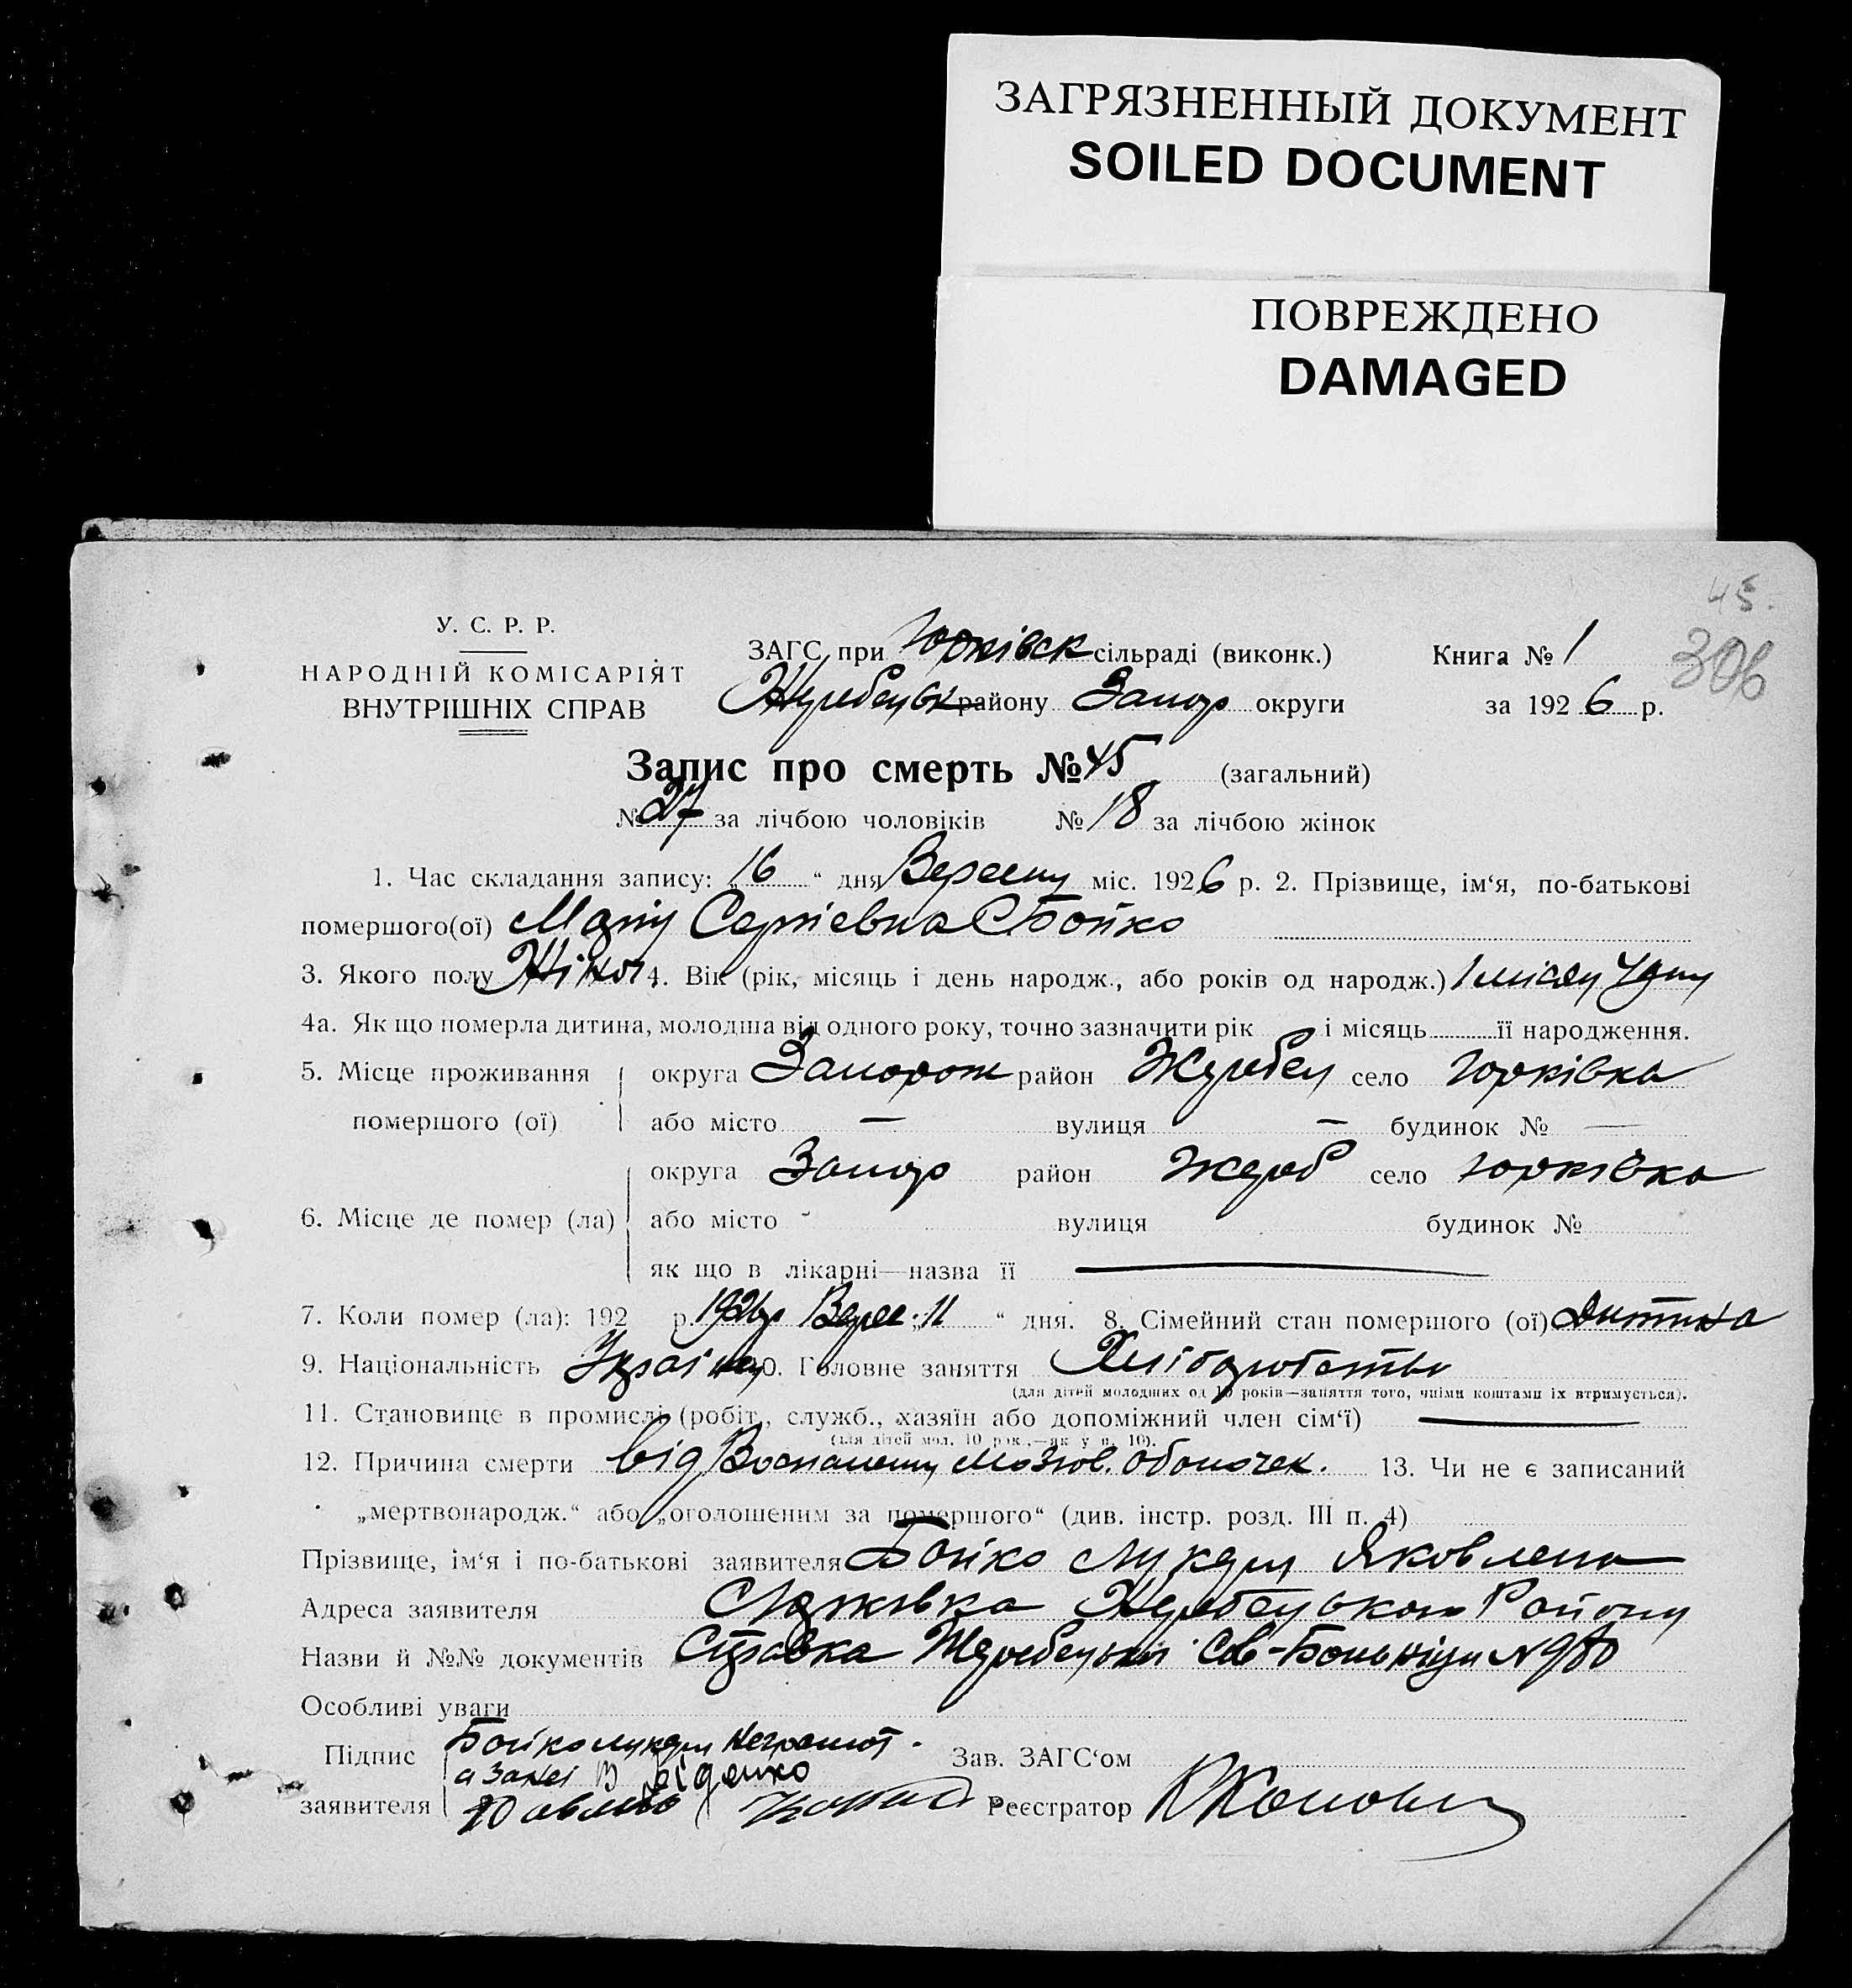 ЗАГРЯЗНЕННЫЙ ДОКУМЕНТ
SOILED DOCUMENT
ПОВРЕЖДЕНО
DAMAGED
45.
306
У. С. Р. Р.
НАРОДНІЙ КОМІСАРІЯТ
ВНУТРІШНІХ СПРАВ
ЗАГС при Юрківск сільраді (виконк.)
Жеребецьк району Запор округи
Книга № 1
за 1926 р.
Запис про смерть № 45 (загальний)
№ 27 за лічбою чоловіків № 18 за лічбою жінок
1. Час складання запису: „16“ дня Вересня міс. 1926 р. 2. Прізвище, ім‘я, по-батькові
помершого(ої) Марія Сергіевна Бойко
3. Якого полу Жіноч 4. Вік (рік, місяць і день народж., або років од народж.) 1 місяц
4а. Як що померла дитина, молодша від одного року, точно зазначити рік і місяць її народження.
5. Місце проживання помершого (ої) округа Запорож район Жеребец село Юрківка
або місто — вулиця — будинок № —
6. Місце де помер (ла) округа Запор район Жереб село Юрківка
або місто - вулиця будинок №
як що в лікарні—назва її —
7. Коли помер (ла): 192 р. 1926р Верес „11“ дня. 8. Сімейний стан помершого (ої) Дитина
9. Національність Україн 10. Головне заняття Хліборобство
(для дітей молодших од 10 років—заняття того, чиїми коштами їх втримується).
11. Становище в промислі (робіт., служб., хазяїн або допоміжний член сім‘ї) —
(для дітей мол. 10 рок.,—як у п. 10).
12. Причина смерти від Воспаления Мозгов. оболочек. 13. Чи не є записаний
„мертвонародж.“ або „оголошеним за помершого“ (див. інстр. розд. III п. 4)
Прізвище, ім‘я і по-батькові заявителя Бойко Лукеря Яковлена
Адреса заявителя Юрківка Жеребецького Району
Назви й №№ документів Справка Жеребецької Больніци N
Особливі уваги
Підпис заявителя Бойко Лукеря Неграмот.
а за неі
Зав. ЗАГС‘ом
Реєстратор